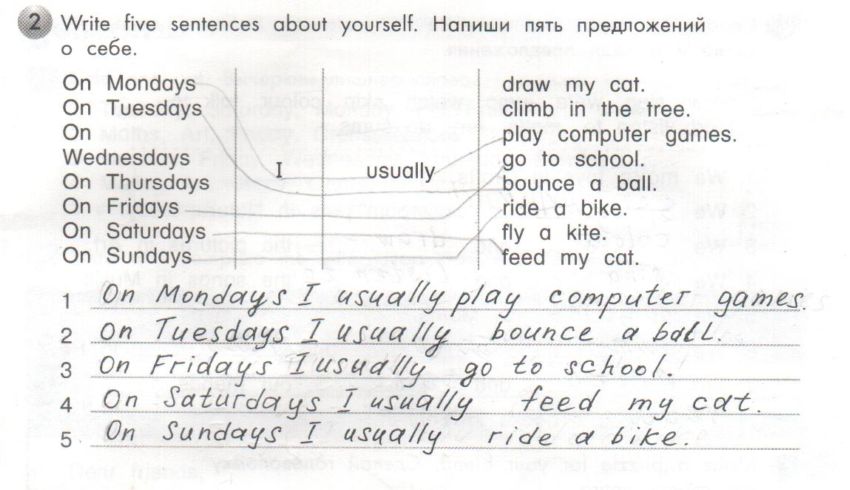 2 Write five sentences about yourself. Напиши пять предложений
о себе.
On Mondays
On Tuesdays
On
Wednesdays
On Thursdays
On Fridays
On Saturdays
On Sundays
I
usually
draw my cat.
climb in the tree.
play computer games.
go to school.
bounce a ball.
ride a bike.
fly a kite.
feed my cat.
1 On Mondays I usually play computer games.
2 On Tuesdays I usually bounce a ball.
3 On Fridays I usually go to school.
4 On Saturdays I usually feed my cat.
5 On Sundays I usually ride a bike.